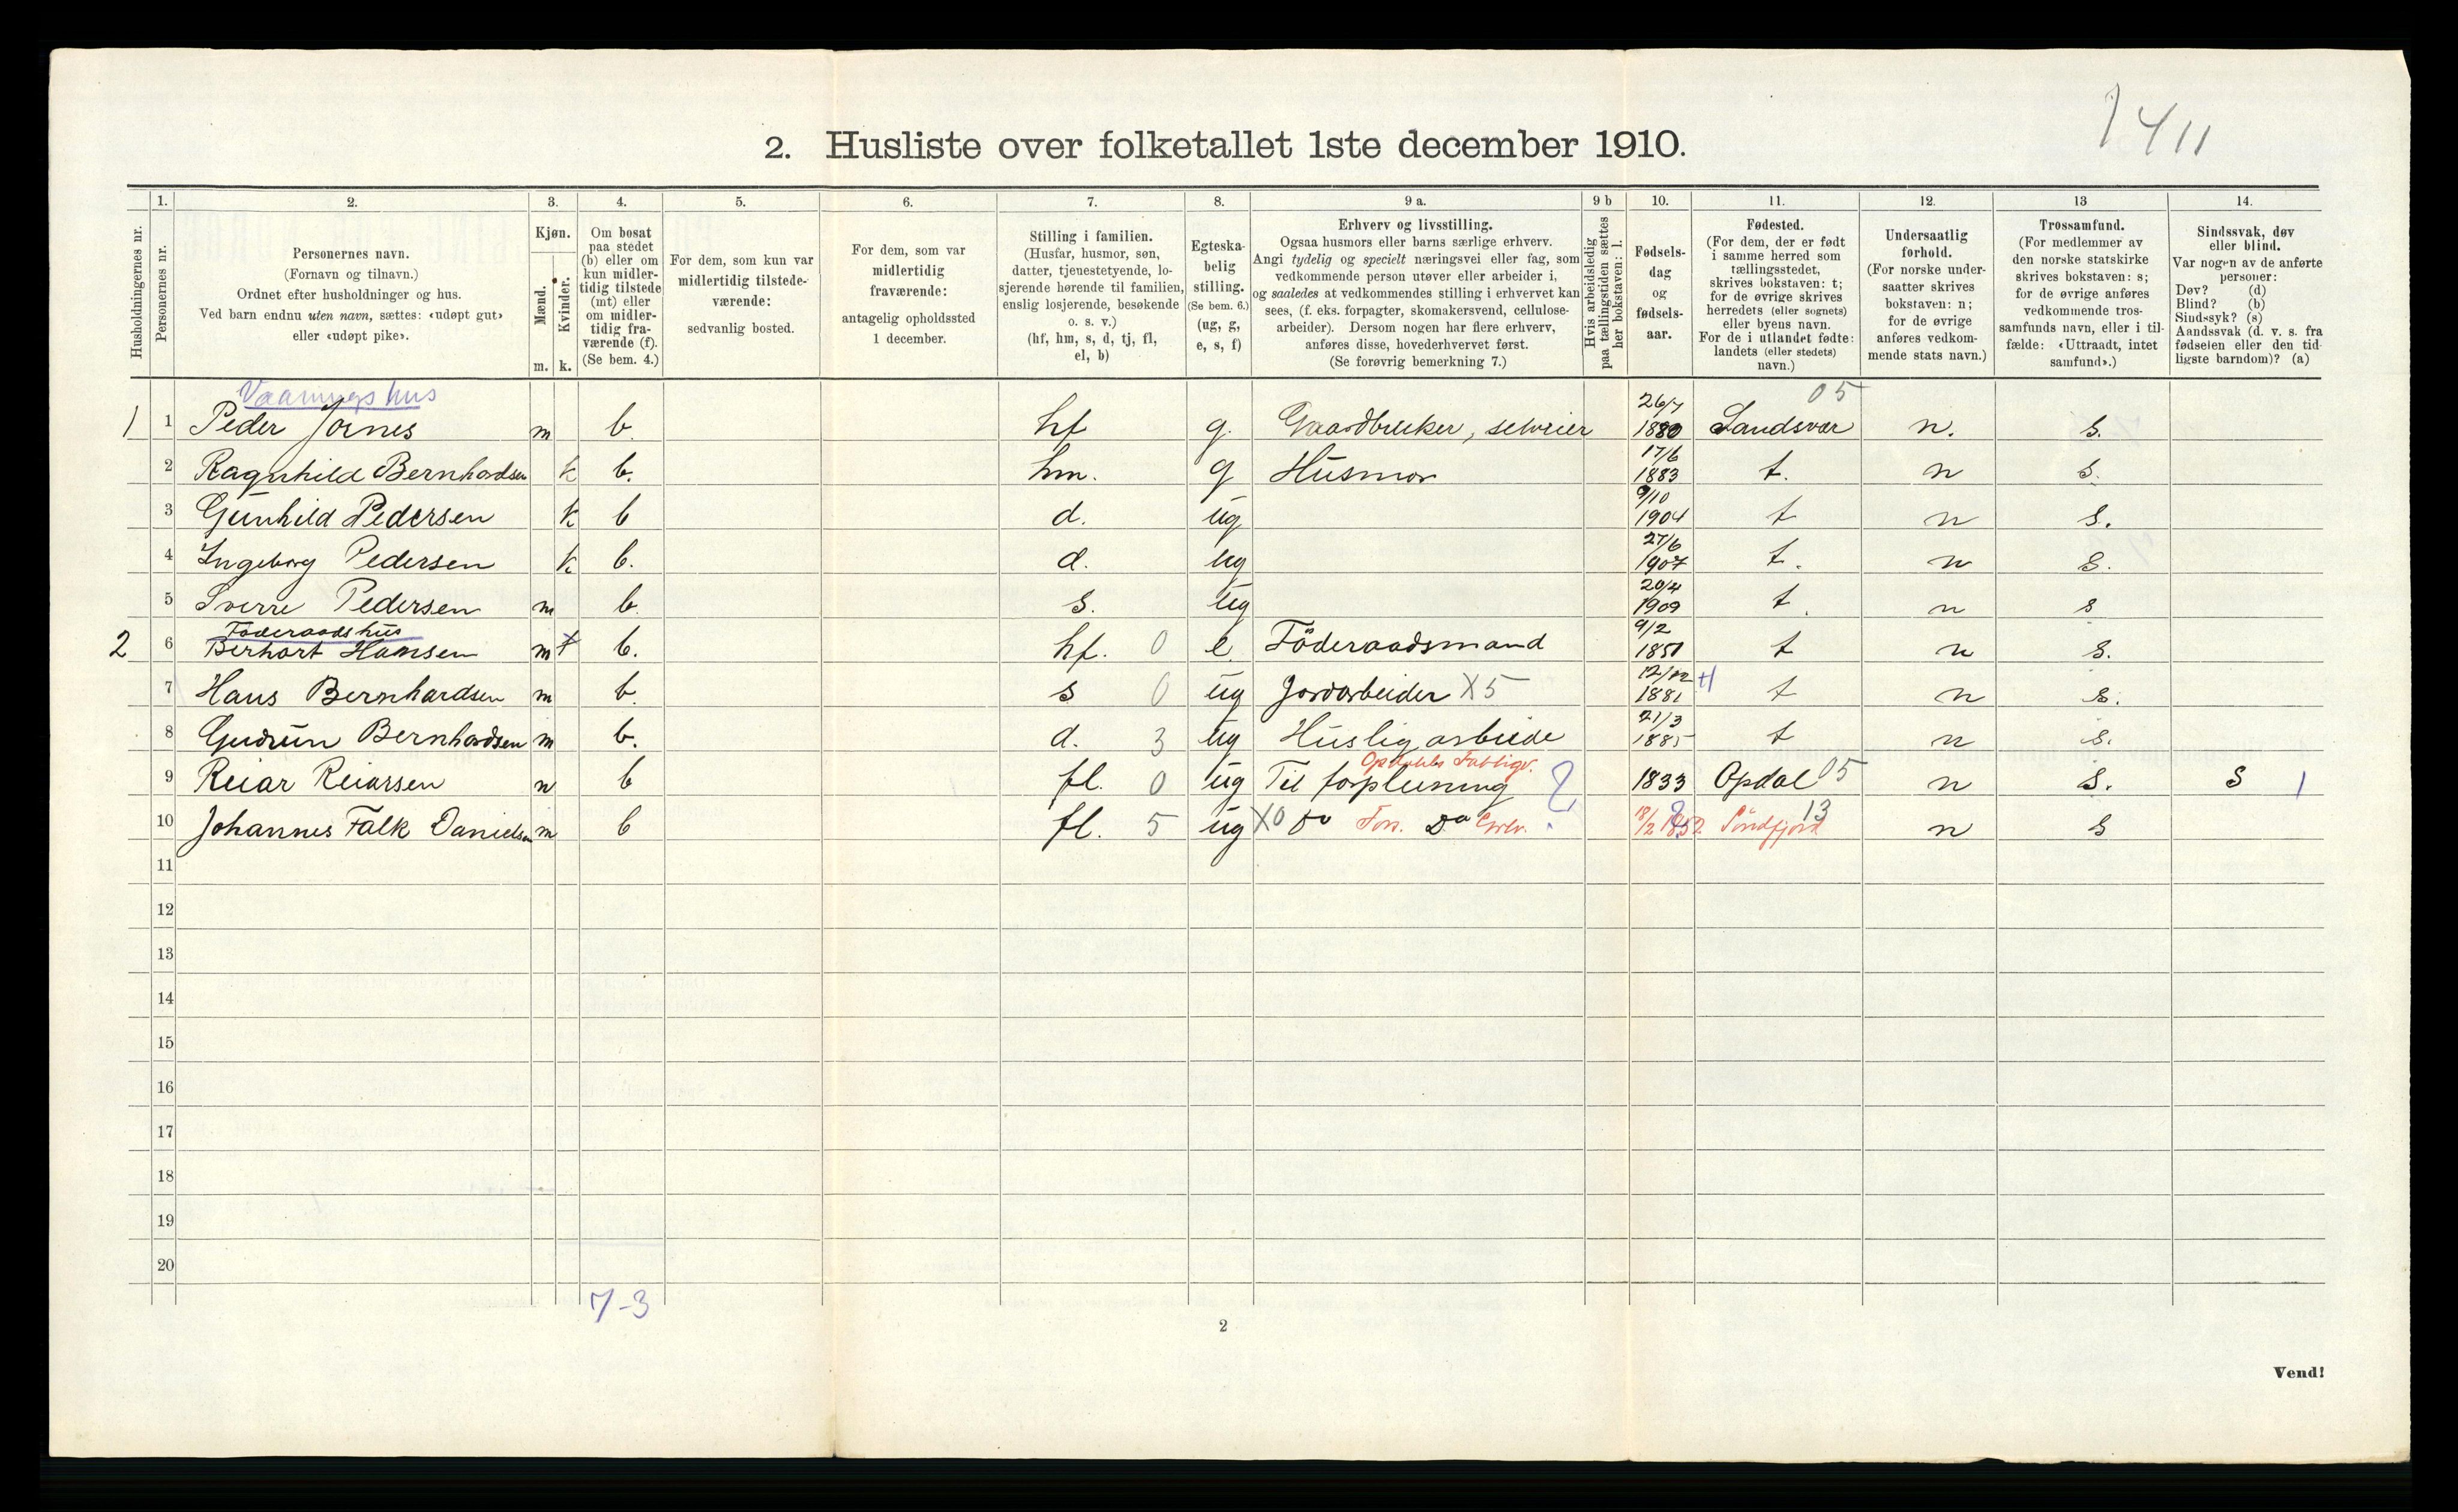 1411
2. Husliste over folketallet 1ste december 1910.
Husholdningernes nr.
1. Personernes nr.
2. Personernes navn.
(Fornavn og tilnavn.)
Ordnet efter husholdninger og hus.
Ved barn endnu uten navn, sættes: «udøpt gut»
eller «udøpt pike».
3. Kjøn.
Mænd. Kvinder.
m. k.
4. Om bosat
paa stedet
(b) eller om
kun midler-
tidig tilstede
(mt) eller
om midler-
tidig fra-
værende (f).
(Se bem. 4.)
5. For dem, som kun var
midlertidig tilstede-
værende:
sedvanlig bosted.
6. For dem, som var
midlertidig
fraværende:
antagelig opholdssted
1 december.
7. Stilling i familien.
(Husfar, husmor, søn,
datter, tjenestetyende, lo-
sjerende hørende til familien,
enslig losjerende, besøkende
o. s. v.)
(hf, hm, s, d, tj, fl,
el, b)
8. Egteska-
belig
stilling.
(Se bem. 6.)
(ug, g,
e, s, f)
9 a. Erhverv og livsstilling.
Ogsaa husmors eller barns særlige erhverv.
Angi tydelig og specielt næringsvei eller fag, som
vedkommende person utøver eller arbeider i,
og saaledes at vedkommendes stilling i erhvervet kan
sees, (f. eks. forpagter, skomakersvend, cellulose-
arbeider). Dersom nogen har flere erhverv,
anføres disse, hovederhvervet først.
(Se forøvrig bemerkning 7.)
9 b Hvis arbeidsledig
paa tællingstiden sættes
her bokstaven: l.
10. Fødsels-
dag
og
fødsels-
aar.
11. Fødested.
(For dem, der er født
i samme herred som
tællingsstedet,
skrives bokstaven: t;
for de øvrige skrives
herredets (eller sognets)
eller byens navn.
For de i utlandet fødte:
landets (eller stedets)
navn.)
12. Undersaatlig
forhold.
(For norske under-
saatter skrives
bokstaven: n;
for de øvrige
anføres vedkom-
mende stats navn.)
13 Trossamfund.
(For medlemmer av
den norske statskirke
skrives bokstaven: s;
for de øvrige anføres
vedkommende tros-
samfunds navn, eller i til-
fælde: «Uttraadt, intet
samfund».)
14. Sindssvak, døv
eller blind.
Var nogen av de anførte
personer:
Døv? (d)
Blind? (b)
Sindssyk? (s)
Aandssvak (d. v. s. fra
fødselen eller den tid-
ligste barndom)? (a)
Vaaningshus
1 1 Peder Jornes m b hf g. Gaardbruker, selveier 26/7 1880 Sandsvær 05 n. s.
2 Ragnhild Bernhardsen k b. hm. g Husmor 17/6 1883 t. n s.
3 Gunhild Pedersen k b d. ug 9/10 1904 t n s.
4 Ingeborg Pedersen k b. d. ug 27/6 1907 t. n s.
5 Sverre Pedersen m b. s. ug 20/4 1909 t. n s
Føderaadshus
2 6 Berhart Hansen m b. hf. 0 e. Föderaadsmand 9/2 1851 t n s.
7 Hans Bernhardsen m b. s 0 ug Jordarbeider X5 12/12 1881 t n s.
8 Gudrun Bernhardsen m b. d. 3 ug Huslig arbeide 21/3 1885 t n s.
9 Reiar Reiarsen m b fl. 0 ug Til forpleining 1833 Opdal 05 n s. S 1
10 Johannes Falk Danielsen m b fl. 5 ug X0 Do Do 18/2 1852 Söndfjord 13 n s
11
12
13
14
15
16
17
18
19
20
7-3
2
Vend!